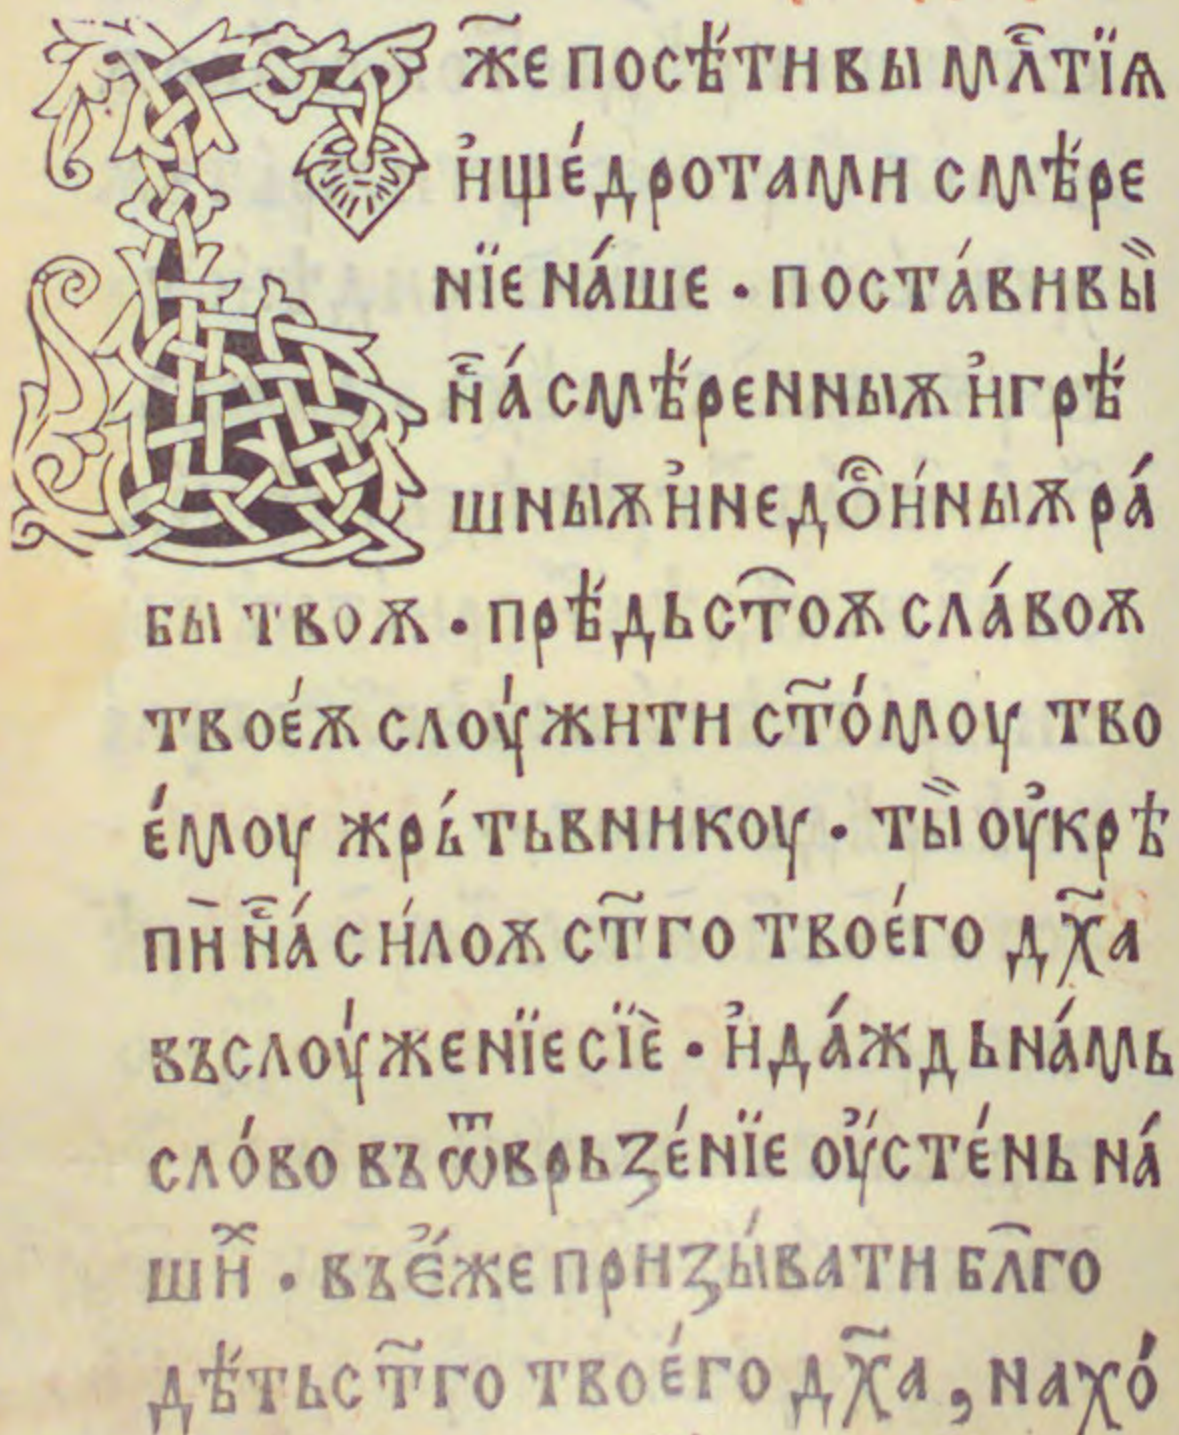 Б҃же посѣ́ти вы мл҇тїѧ
и҆ще́дротами смѣ́ре
нїе на́ше · поста́вивы̏и
н҇а́ смѣ́ренныѫ и҆грѣ́
шныѫ и҆недо҇и́ныѫ ра́
бы твоѫ · прѣ́дьст҃оѫ сла́воѫ
твоеѫ́ слоу́жити ст҃о́моу тво
е́моу жрь́тьвникоу · ты̏ оу҆крѣ
пѝ н҇а́ си́лоѫ ст҃го твое́го дх҃а
въслоу́женїе сїѐ · и҆да́ждь на́мь
сло́во въѿврьзе́нїе оу҆́сте́нь на́
ши҇х · въе҆́же призы́вати бл҃го
дѣ́ть ст҃го твое́го дх҃а , нахо́